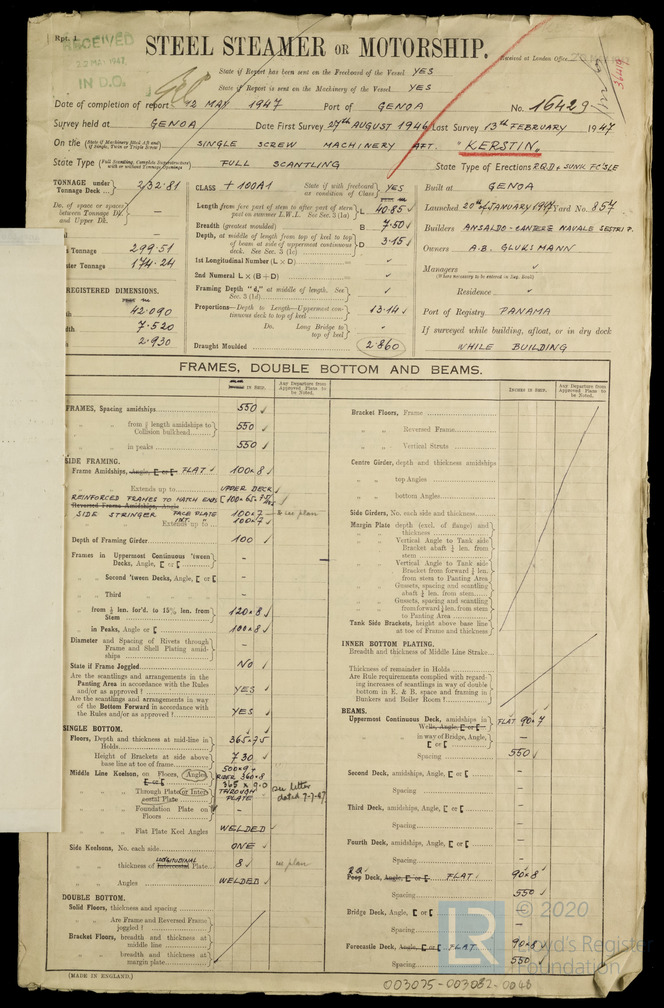 Rpt. 1.
RECEIVED
22 MAY 1947
IN D.O.
STEEL STEAMER OR MOTORSHIP.
Received at London Office
State if Report has been sent on the Freeboard of the Vessel YES
State if Report is sent on the Machinery of the Vessel YES
Date of completion of report 12 MAY 1947 Port of GENOA No. 16429
Survey held at GENOA Date First Survey 27th AUGUST 1946 Last Survey 13th FEBRUARY 1947
On the (State if Machinery fitted Aft and if Single, Twin or Triple Screw) SINGLE SCREW MACHINERY AFT. "KERSTIN."
State Type (Full Scantling, Complete Superstructure with or without Tonnage Openings) FULL SCANTLING State Type of Erections R.Q.D + SUNK FC'SLE
TONNAGE under Tonnage Deck ... 232.81
Do. of space or spaces between Tonnage Dk. and Upper Dk. —
Tonnage 299.51
Tonnage 174.24
REGISTERED DIMENSIONS.
42.090
7.520
2.930
CLASS + 100A1 State if with freeboard as condition of Class YES
Length from fore part of stem to after part of stern post on summer L.W.L. See Sec. 3 (1a) L 40.85 ✓
Breadth (greatest moulded) B 7.50 ✓
Depth, at middle of length from top of keel to top of beam at side of uppermost continuous deck. See Sec. 3 (1c) D 3.15 ✓
1st Longitudinal Number (L × D) ✓
2nd Numeral L × (B + D) ✓
Framing Depth "d," at middle of length. See Sec. 3 (1d) ✓
Proportions—Depth to Length—Uppermost continuous deck to top of keel 13.14 ✓
Do. Long Bridge to top of keel
Draught Moulded 2.860
Built at GENOA
Launched 20th of JANUARY 1947 Yard No. 857
Builders ANSALDO - CANTIERE NAVALE SESTRI P.
Owners A.B. GLUKSMANN
Managers ✓
(Where necessary to be entered in Reg. Book)
Residence ✓
Port of Registry PANAMA
If surveyed while building, afloat, or in dry dock
WHILE BUILDING
FRAMES, DOUBLE BOTTOM AND BEAMS.
Any Departure from Approved Plans to be Noted.
FRAMES, Spacing amidships 550 ✓
" " from ½ length amidships to Collision bulkhead 550 ✓
" " in peaks 550 ✓
SIDE FRAMING.
Frame Amidships, Angle, [ or [ FLAT ✓ 100 × 8 ✓
" " Extends up to UPPER DECK
REINFORCED FRAMES TO HATCH ENDS
Reversed Frame Amidships, Angle
SIDE STRINGER FACE PLATE 100×7 ✓ as per plan
Extends up to 100×7 ✓
Depth of Framing Girder 100 ✓
Frames in Uppermost Continuous 'tween Decks, Angle, [ or [ —
" Second 'tween Decks, Angle, [ or [ —
" Third " " " " —
" from ½ len. for'd. to 15% len. from Stem 120×8 ✓
" in Peaks, Angle or [ 100×8 ✓
Diameter and Spacing of Rivets through Frame and Shell Plating amidships —
State if Frame Joggled NO ✓
Are the scantlings and arrangements in the Panting Area in accordance with the Rules and/or as approved? YES ✓
Are the scantlings and arrangements in way of the Bottom Forward in accordance with the Rules and/or as approved? YES ✓
SINGLE BOTTOM.
Floors, Depth and thickness at mid-line in Holds 365×9.5
Height of Brackets at side above base line at toe of frame 730 ✓
Middle Line Keelson, on Floors, Angles, [ or [ 500×9 RIDER 360×8
" " Through Plate or Intercostal Plate 365 × 9.0 THROUGH PLATE see letter dated 7-7-47.
" " Foundation Plate on Floors —
" " Flat Plate Keel Angles WELDED ✓
Side Keelsons, No. each side ONE ✓
" " thickness of LONGITUDINAL Intercostal Plate 8 ✓ as plan
" " Angles WELDED ✓
DOUBLE BOTTOM.
Solid Floors, thickness and spacing
" " Are Frame and Reversed Frame joggled?
Bracket Floors, breadth and thickness at middle line
" " breadth and thickness at margin plate
Inches in Ship. Any Departure from Approved Plans to be Noted.
Bracket Floors, Frame
" " Reversed Frame
" " Vertical Struts
Centre Girder, depth and thickness amidships
" " top Angles
" " bottom Angles
Side Girders, No. each side and thickness
Margin Plate depth (excl. of flange) and thickness
" " Vertical Angle to Tank side Bracket abaft ¼ len. from stem
" " Vertical Angle to Tank side Bracket from forward ¼ len. from stem to Panting Area
" " Gussets, spacing and scantling abaft ¼ len. from stem
" " Gussets, spacing and scantling from forward ¼ len. from stem to Panting Area
Tank Side Brackets, height above base line at toe of Frame and thickness
INNER BOTTOM PLATING.
Breadth and thickness of Middle Line Strake
Thickness of remainder in Holds
Are Rule requirements complied with regarding increases of scantlings in way of double bottom in E. & B. space and framing in Bunkers and Boiler Room?
BEAMS.
Uppermost Continuous Deck, amidships in Wells, Angle, [ or [ FLAT 90×7
" " in way of Bridge, Angle, [ or [ —
Spacing 550 ✓
Second Deck, amidships, Angle, [ or [ —
Spacing —
Third Deck, amidships, Angle, [ or [ —
Spacing —
Fourth Deck, amidships, Angle, [ or [ —
Spacing —
R.Q. Poop Deck, Angle, [ or [ FLAT ✓ 90×8
Spacing 550 ✓
Bridge Deck, Angle, [ or [ —
Spacing —
Forecastle Deck, Angle, [ or [ FLAT 90×8
Spacing 550 ✓
(MADE IN ENGLAND.)
LR © 2020
Lloyd's Register
Foundation
003075-003082-0048